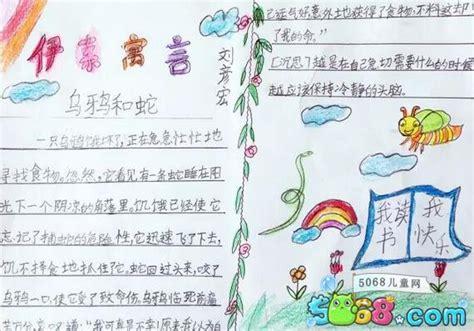 伊索寓言
刘彦宏
乌鸦和蛇
一只乌鸦饿坏了,正在急急忙忙地
寻找食物。忽然,它看见有条蛇睡在阳
光下一个阴凉的角落里。饥饿已经使它
忘记了捕蛇的危险性,它迅速飞了下去,
饥不择食地抓住了它,蛇回过头来,咬了
乌鸦一口,使它受了致命伤,乌鸦临死前痛
苦万分,说:“我可真是不幸!原来我认为
己运气好意外地获得了食物,不料这却
了我的命。”
[沉思]越是在自己急切需要什么的时候
越应该保持冷静的头脑。
我读书
我快乐
5068儿童网
5068.com